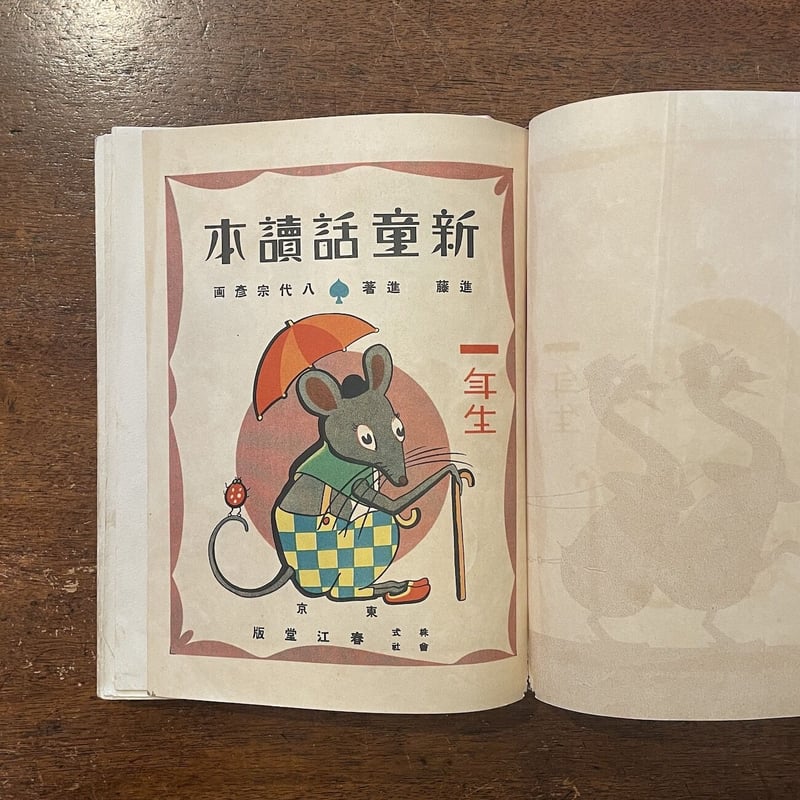 新童話讀本
進藤 進著 八代宗彥画
一年生
東京
株式會社 春江堂版